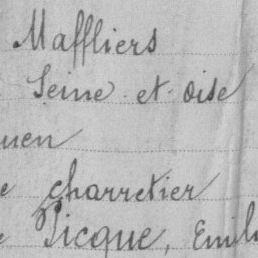 Maffliers
Seine et oise
uen
e charretier
e Picque, Emil